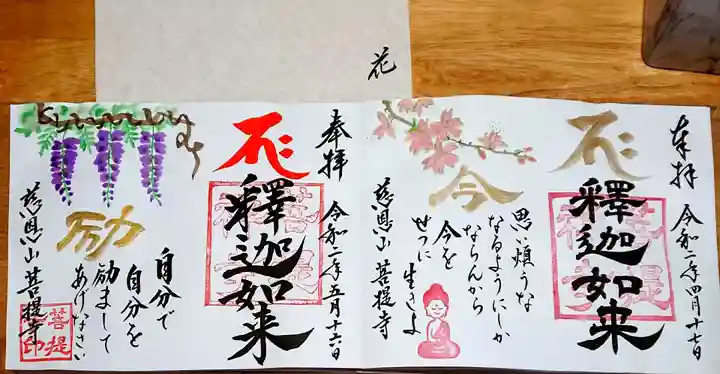 花
奉拝 令和二年四月十七日
釋迦如来
今
思い煩うな
なるようにしか
ならんから
今を
せつに
生きよ
慈恩山 菩提寺
奉拝 令和二年五月十六日
釋迦如来
励
自分で
自分を
励まして
あげなさい
慈恩山 菩提寺
菩提